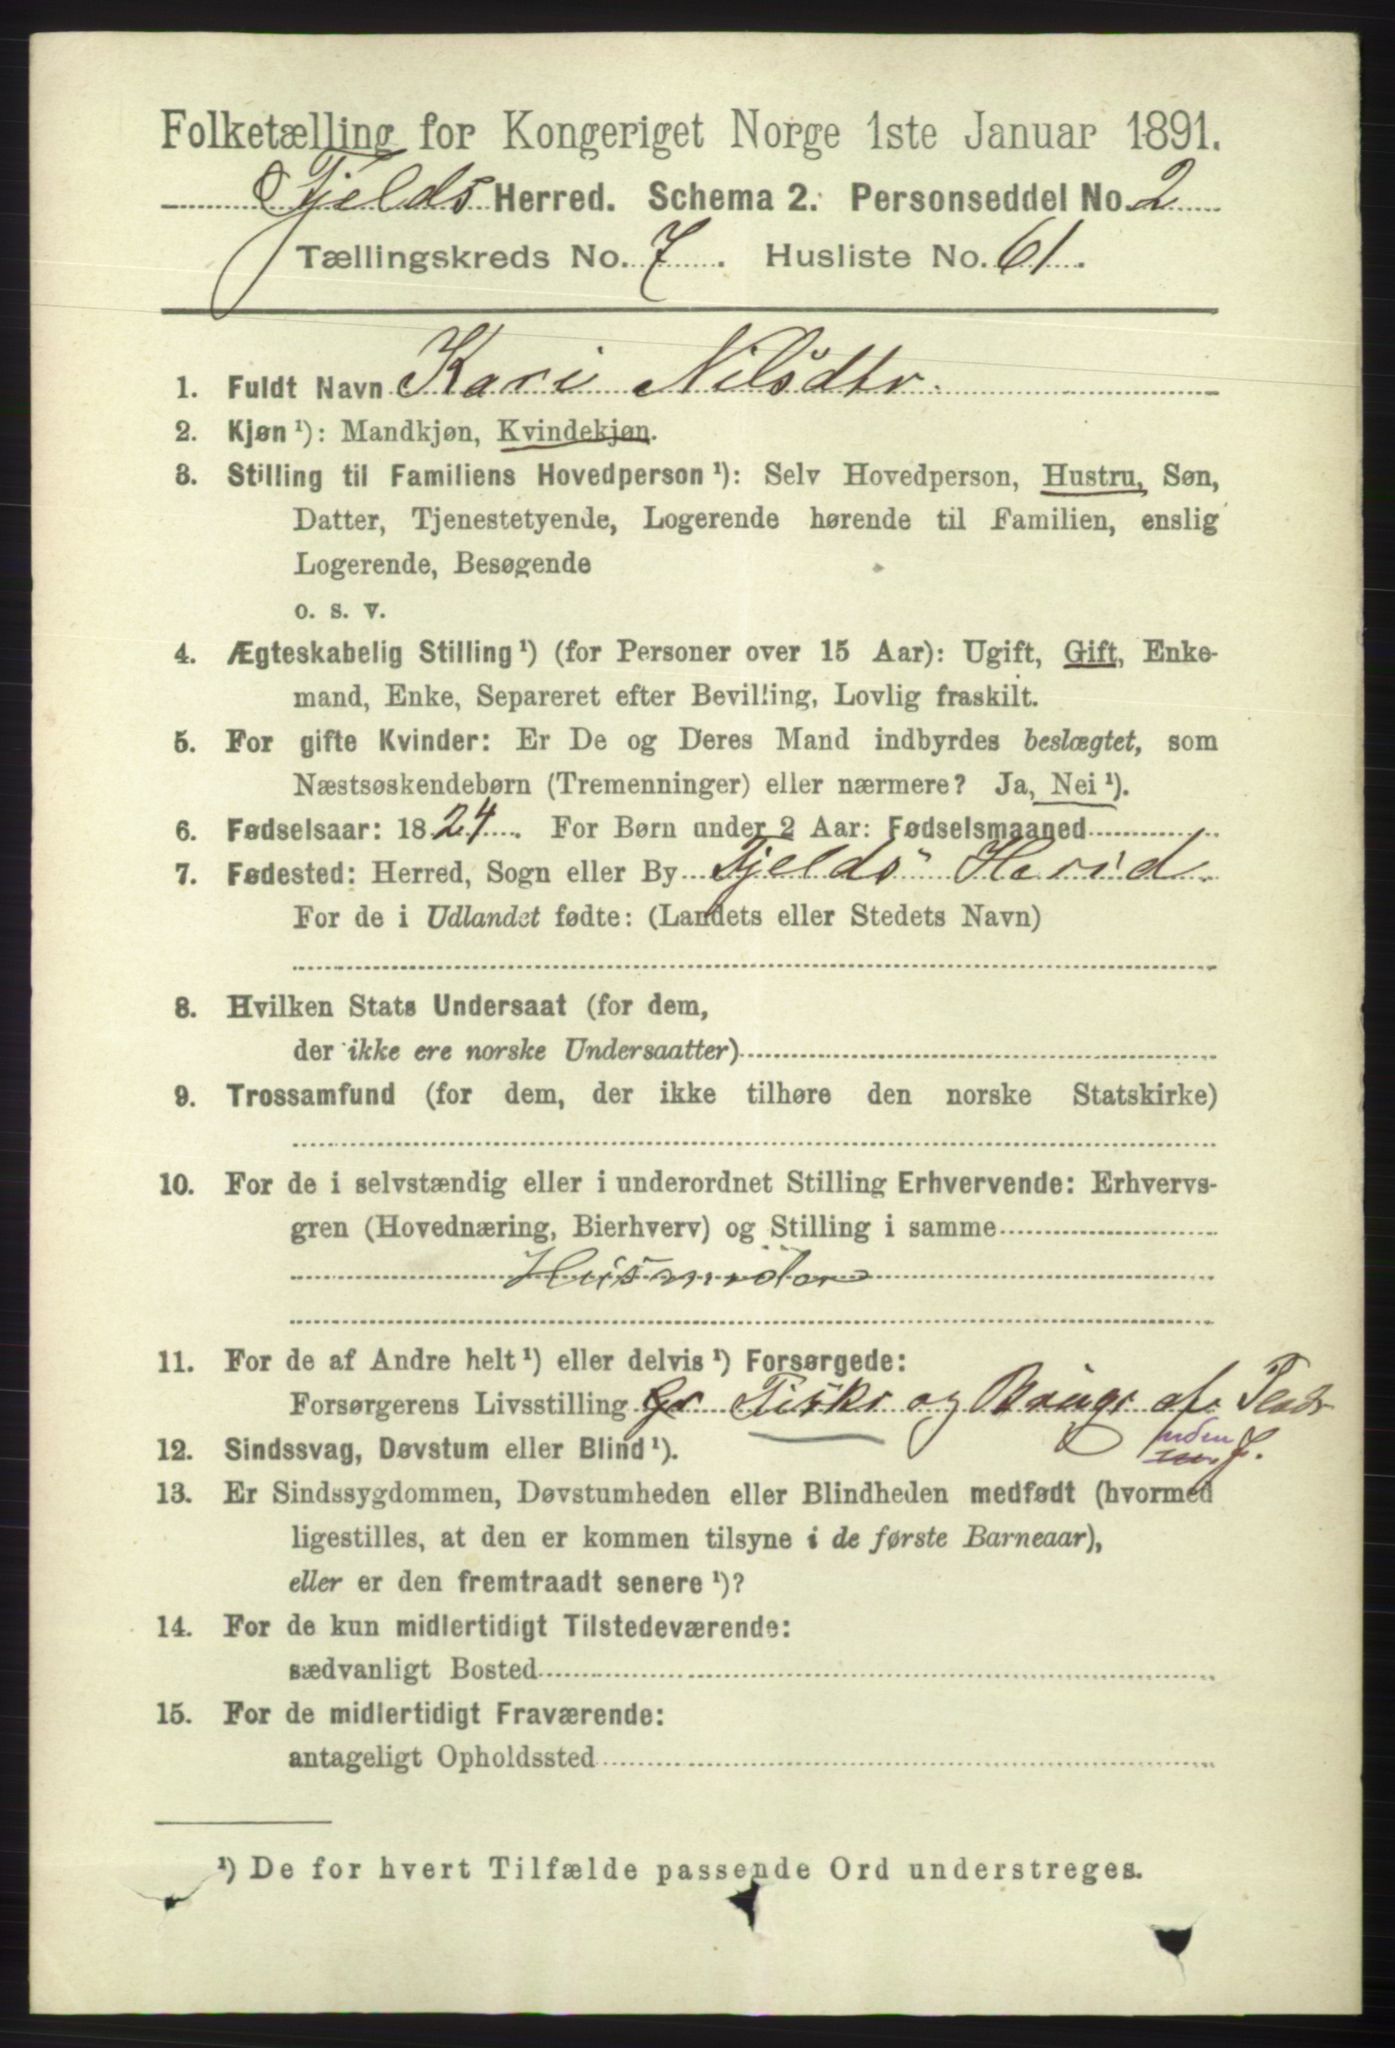 Folketælling for Kongeriget Norge 1ste Januar 1891.
Fjelds Herred. Schema 2. Personseddel No. 2
Tællingskreds No. 7. Husliste No. 61.
1. Fuldt Navn Kari Nilsdtr.
2. Kjøn ¹): Mandkjøn, Kvindekjøn.
3. Stilling til Familiens Hovedperson ¹): Selv Hovedperson, Hustru, Søn,
Datter, Tjenestetyende, Logerende hørende til Familien, enslig
Logerende, Besøgende
o. s. v.
4. Ægteskabelig Stilling ¹) (for Personer over 15 Aar): Ugift, Gift, Enke-
mand, Enke, Separeret efter Bevilling, Lovlig fraskilt.
5. For gifte Kvinder: Er De og Deres Mand indbyrdes beslægtet, som
Næstsøskendebørn (Tremenninger) eller nærmere? Ja, Nei ¹).
6. Fødselsaar: 1824. For Børn under 2 Aar: Fødselsmaaned
7. Fødested: Herred, Sogn eller By Fjelds Herid.
For de i Udlandet fødte: (Landets eller Stedets Navn)
8. Hvilken Stats Undersaat (for dem,
der ikke ere norske Undersaatter)
9. Trossamfund (for dem, der ikke tilhøre den norske Statskirke)
10. For de i selvstændig eller i underordnet Stilling Erhvervende: Erhvervs-
gren (Hovednæring, Bierhverv) og Stilling i samme
11. For de af Andre helt ¹) eller delvis ¹) Forsørgede:
Forsørgerens Livsstilling Gr Fisker og Bruger af Plads
uden J.
12. Sindssvag, Døvstum eller Blind ¹).
13. Er Sindssygdommen, Døvstumheden eller Blindheden medfødt (hvormed
ligestilles, at den er kommen tilsyne i de første Barneaar),
eller er den fremtraadt senere ¹)?
14. For de kun midlertidigt Tilstedeværende:
sædvanligt Bosted
15. For de midlertidigt Fraværende:
antageligt Opholdssted
¹) De for hvert Tilfælde passende Ord understreges.